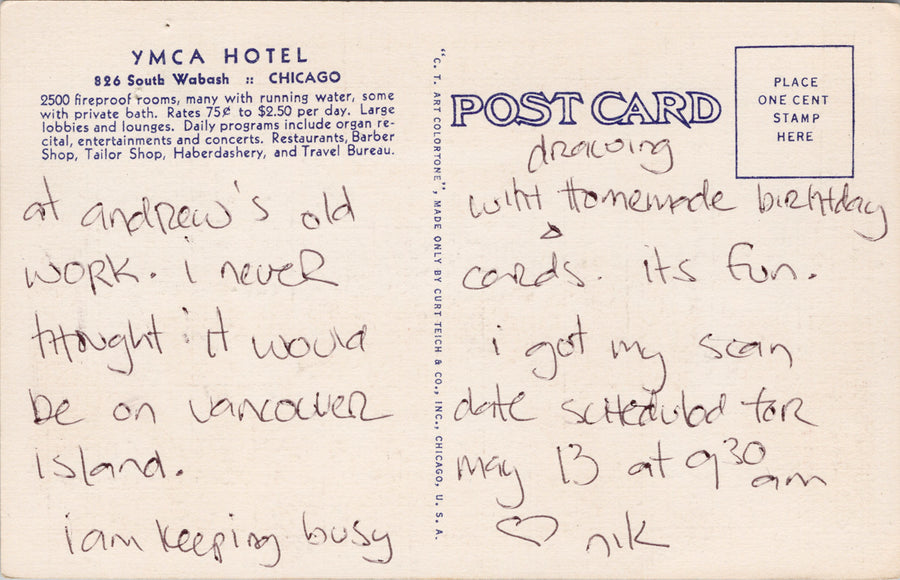 YMCA HOTEL
826 South Wabash :: CHICAGO
2500 fireproof rooms, many with running water, some
with private bath. Rates 75¢ to $2.50 per day. Large
lobbies and lounges. Daily programs include organ re-
cital, entertainments and concerts. Restaurants, Barber
Shop, Tailor Shop, Haberdashery, and Travel Bureau.
at andrew's old
work. i never
thought it would
be on vancouver
island.
i am keeping busy
"C. T. ART COLORTONE", MADE ONLY BY CURT TEICH & CO., INC., CHICAGO, U. S. A.
POST CARD
PLACE
ONE CENT
STAMP
HERE
drawing
with homemade birthday
cards. its fun.
i got my scan
date scheduled for
may 13 at 9³⁰
am
♡ nik